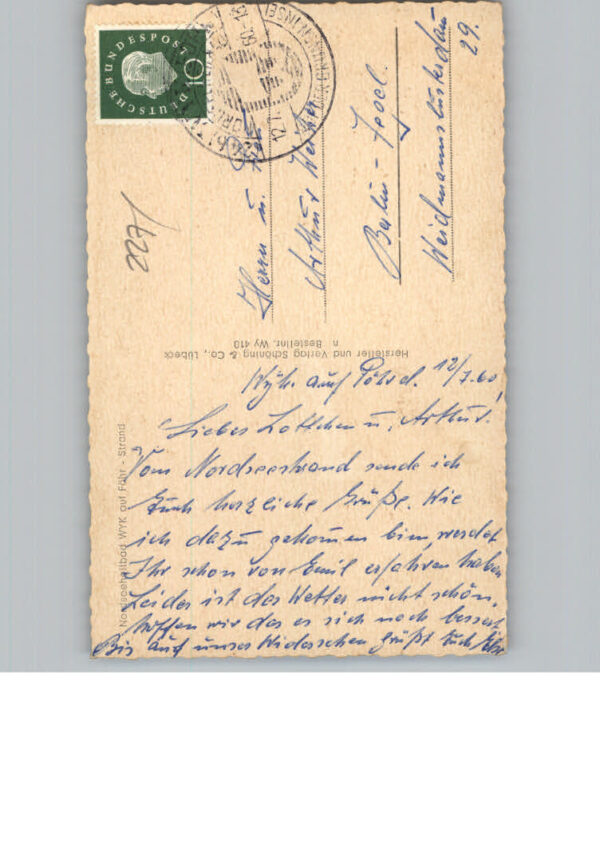 DEUTSCHE BUNDESPOST
10
Herrn u.
Arthur Werner
Berlin-Tegel.
Weidmannslusterdam
29.
Hersteller und Verlag Schöning & Co., Lübeck
n Bestellnr. Wy 410
Nordseeheilbad WYK auf Föhr - Strand
Wyk auf 12/7.60,
Liebes Lottchen u. Arthur.
Vom Nordseestrand sende ich
Euch herzliche Grüße. Wie
ich dazu gekommen bin, werdet
Ihr schon von Emil erfahren haben
Leider ist das Wetter nicht schön.
hoffen wir das es sich noch bessert
Bis auf unser Wiedersehen grüßt Euch